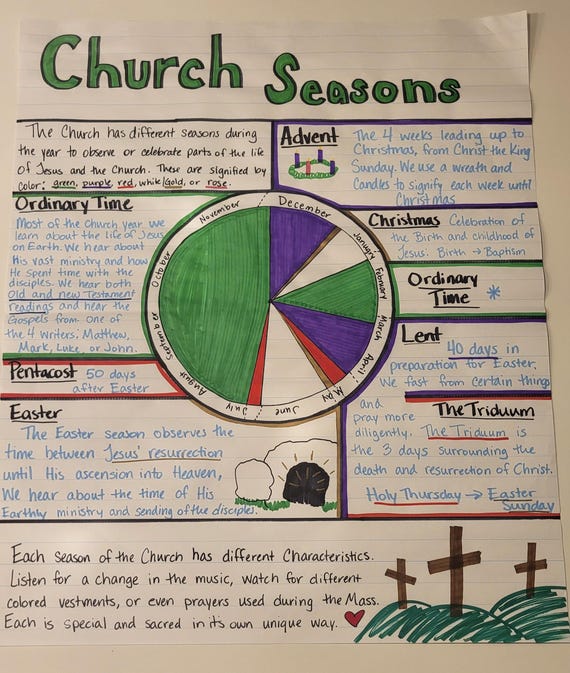 Church Seasons
The Church has different seasons during
the year to observe or celebrate parts of the life
of Jesus and the Church. These are signified by
color: green, purple, red, white/Gold, or rose.
Advent
The 4 weeks leading up to
Christmas, from Christ the King
Sunday. We use a wreath and
Candles to signify each week until
Christmas
Ordinary Time
Most of the Church year we
learn about the life of Jesus
on Earth. We hear about
His vast ministry and how
He spent time with the
disciples. We hear both
Old and new Testament
readings and hear the
Gospels from One of
the 4 writers; Matthew,
Mark, Luke, or John.
November
December
January
February
March
April
May
June
July
August
September
October
Christmas Celebration of
the Birth and childhood of
Jesus. Birth → Baptism
Ordinary
Time *
Lent
40 days in
preparation for Easter.
We fast from certain things
and
pray more
diligently.
The Triduum
The Triduum is
the 3 days surrounding the
death and resurrection of Christ.
Holy Thursday → Easter
Sunday
Pentacost 50 days
after Easter
Easter
The Easter season observes the
time between Jesus' resurrection
until His ascension into Heaven,
We hear about the time of His
Earthly ministry and sending of the disciples.
Each season of the Church has different Characteristics.
Listen for a change in the music, watch for different
colored vestments, or even prayers used during the Mass.
Each is special and sacred in it's own unique way.